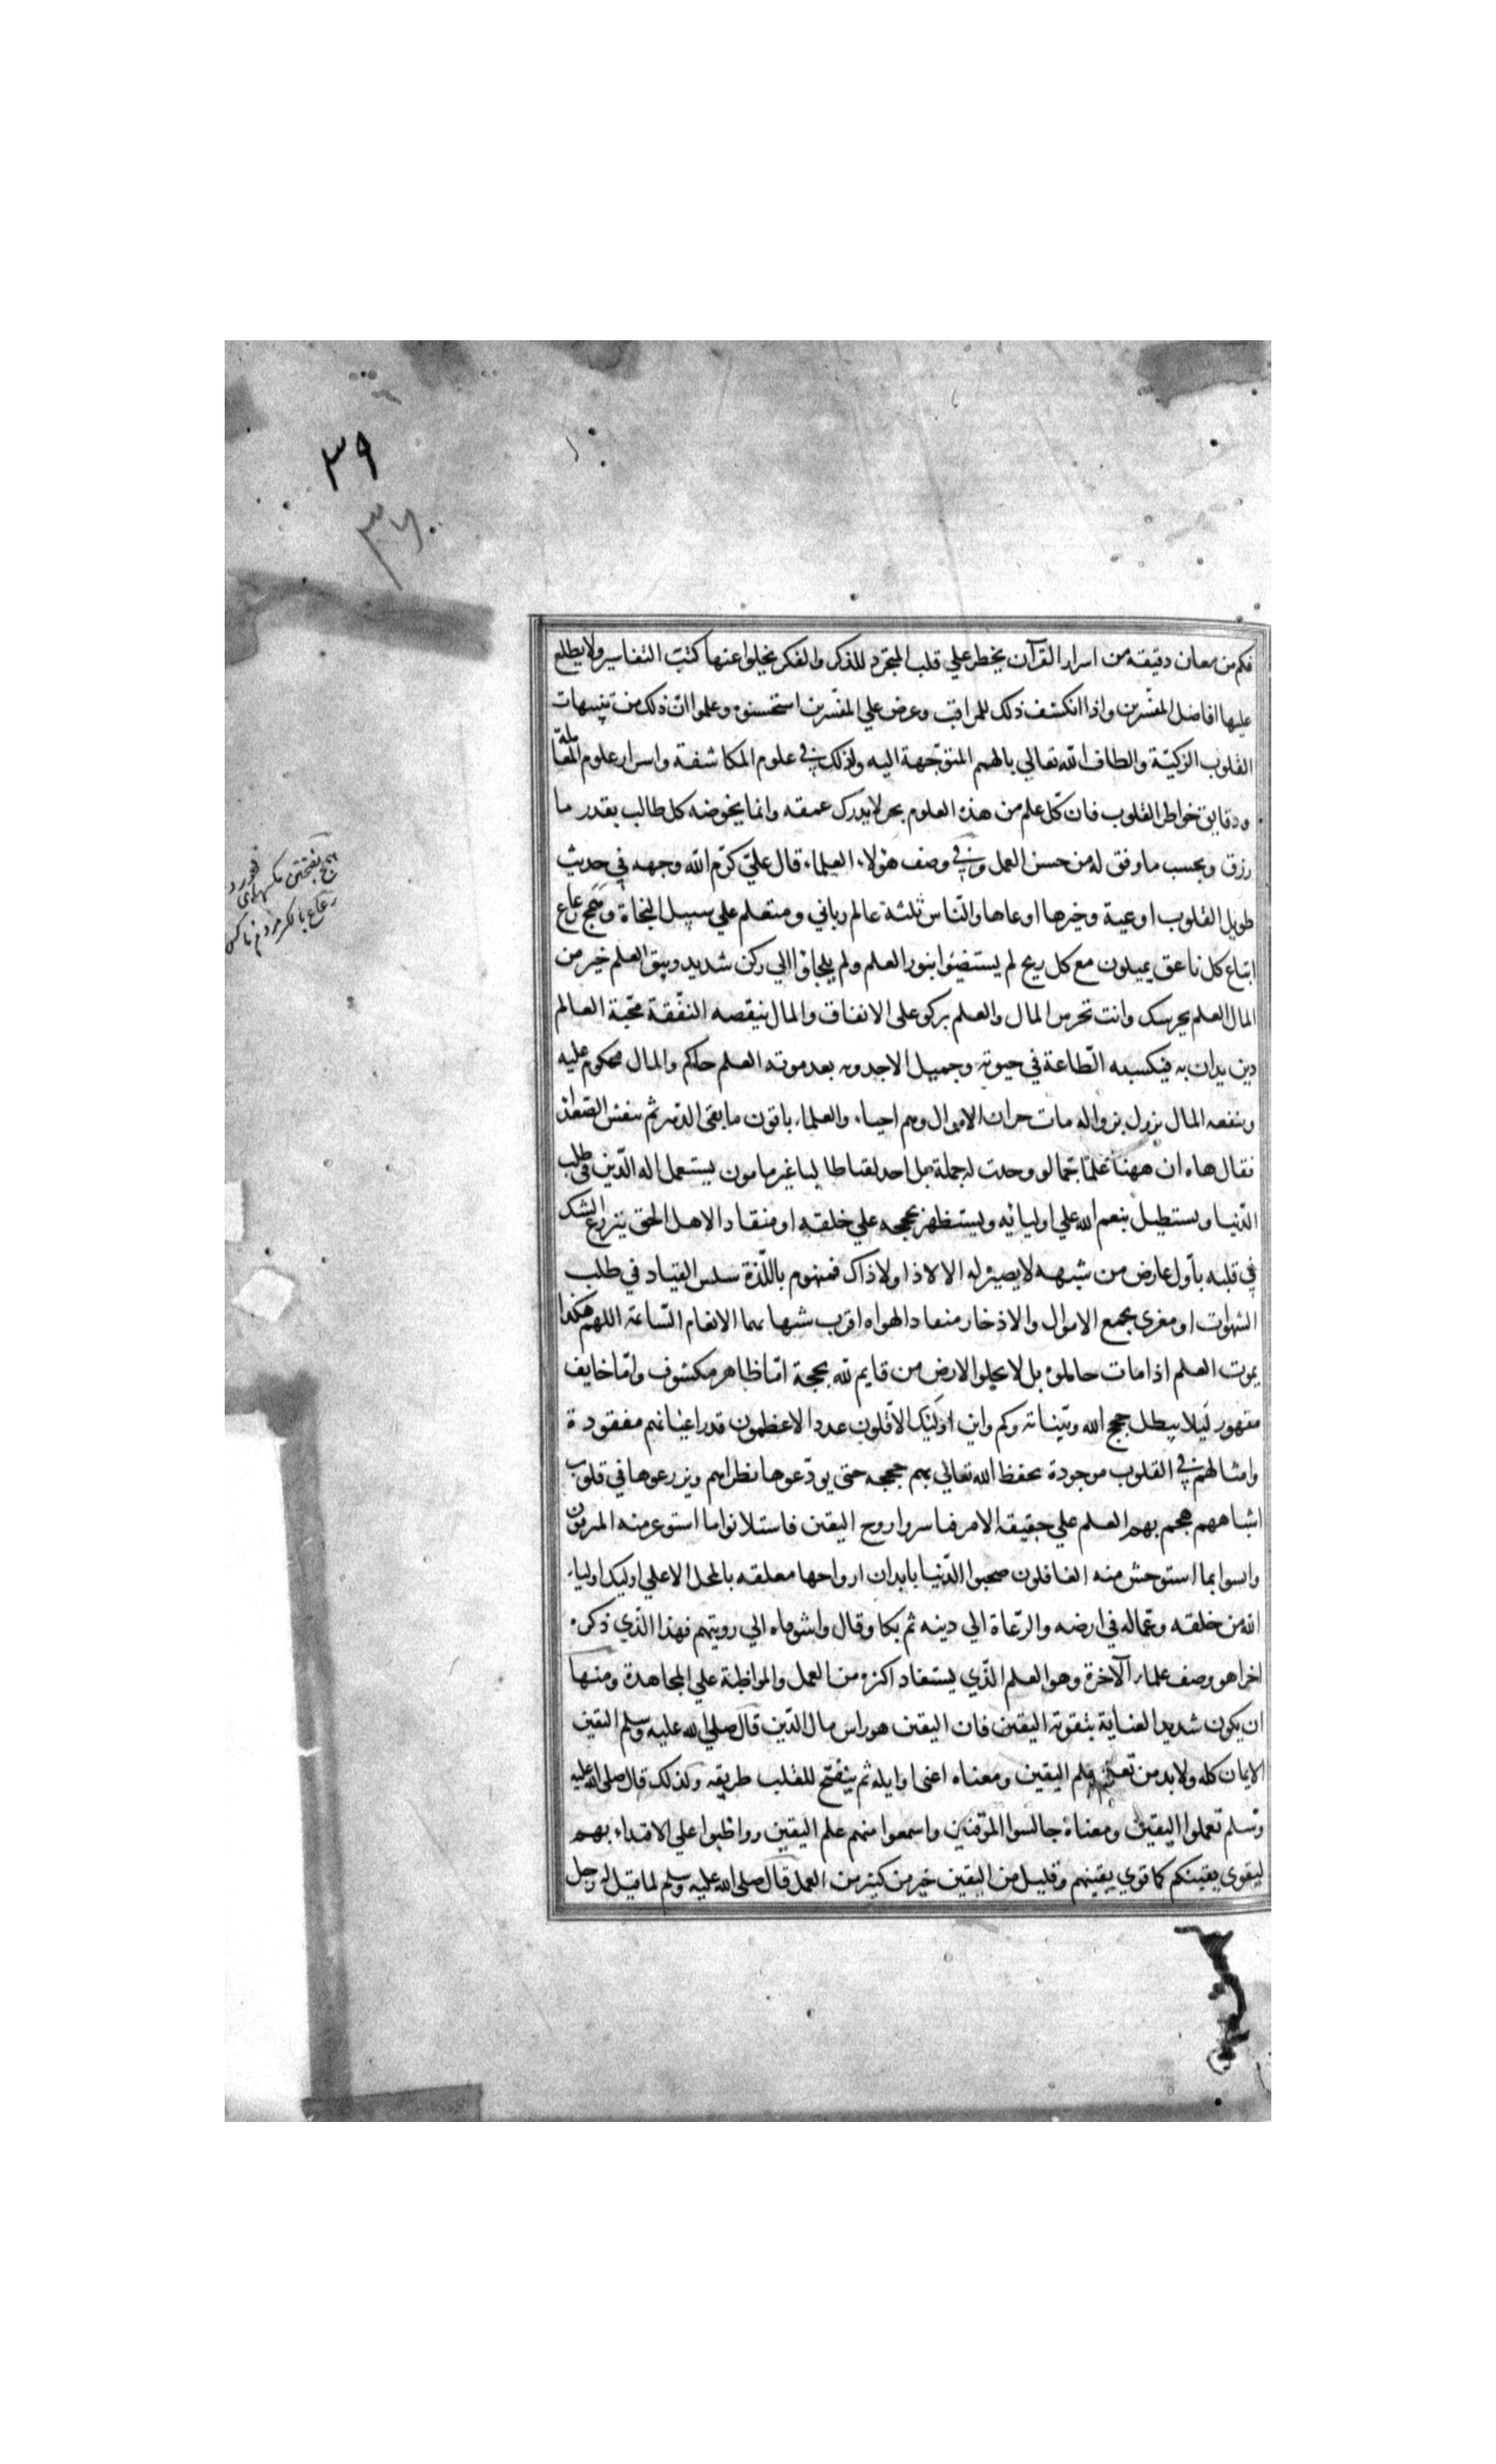 ٣٩
٣٧
فكم من معان دقيقة من اسرار القرآن يخطر علي قلب المتجرد للذكر والفكر يخلوا عنها كتب التفاسير ولا يطلع
عليها افاضل المفسرين واذا انكشف ذلك للمراقب وعرض علي المفسرين استحسنوه وعلموا ان ذلك من تنبيهات
القلوب الزكيّة والطاف الله تعالي بالهمم المتوجّهة اليه وكذلك في علوم المكاشفة واسرار علوم المعاملة
ودقايق خواطر القلوب فان كل علم من هذه العلوم بحر لا يدرك عمقه وانما يخوضه كل طالب بقدر ما
رزق وبحسب ما وفق له من حسن العمل وفي وصف هؤلاء العلماء قال عليّ كرّم الله وجهه في حديث
طويل القلوب اوعية وخيرها اوعاها والنّاس ثلثة عالم رباني ومتعلم علي سبيل النجاة وهمج رعاع
اتباع كل ناعق يميلون مع كل ريح لم يستضيئوا بنور العلم ولم يلجاوا الي ركن شديد وثيق العلم خير من
المال العلم يحرسك وانت تحرس المال والعلم يزكو علي الانفاق والمال ينقصه النفقة محبّة العالم
دين يدان به فيكسبه الطّاعة في حيوته وجميل الاحدوثه بعد موته العلم حاكم والمال محكوم عليه
ومنفعه المال يزول بزواله مات خزان الاموال وهم احياء والعلماء باقون ما بقي الدّهر ثم تنفس الصعدا
فقال هاه ان ههنا علمًا جمّا لو وجدت له حملة بل اجد لقنا طالبا غير مامون يستعمل اله الدّين في طلب
الدّنيا ويستطيل بنعم الله علي اوليائه ويستظهر بحججه علي خلقه او منقادا لاهل الحق ينزرع الشك
في قلبه باول عارض من شبهه لا بصيره له الا لا ذا ولا ذاك فمنهوم باللّذة سلس القياد في طلب
الشهوات او مغري بجمع الاموال والادخار منقادا لهواه اقرب شبها بهما الانعام السّائمة اللهم هكذا
يموت العلم اذا مات حاملوه بل لا يخلو الارض من قايم لله بحجة امّا ظاهر مكشوف وامّا خايف
مقهور ليلا يبطل حجج الله وبيّناته وكم واين اولئك الاقلون عددا الاعظمون قدرا اعيانهم مفقودة
وامثالهم في القلوب موجودة يحفظ الله تعالي بهم حججه حتي يودّعوها نظراهم ويزرعوها في قلوب
اشباههم هجم بهم العلم علي حقيقه الامر فباسروا روح اليقين فاستلانوا ما استوعر منه المترفون
وانسوا بما استوحش منه الغافلون صحبوا الدّنيا بابدان ارواحها معلقه بالمحل الاعلي اوليك اولياء
الله من خلقه وعماله في ارضه والدّعاة الي دينه ثم بكا وقال واشوقاه الي رويتهم فهذا الّذي ذكره
اخرا هو وصف علماء الآخرة وهو العلم الّذي يستفاد اكثره من العمل والمواظبة علي المجاهدة ومنها
ان يكون شديد العناية بتقوية اليقين فان اليقين هو راس مال الدّين قال صلي الله عليه وسلم اليقين
الايمان كله ولا بد من تعلم علم اليقين ومعناه اعني اوايله ثم ينفتح للقلب طريقه ولذلك قال صلي الله عليه
وسلم تعملوا اليقين ومعناه جالسوا الموقنين واسمعوا منهم علم اليقين وواظبوا علي الاقتداء بهم
ليقوي يقينكم كما قوي يقينهم وقليل من اليقين خير من كثير من العمل قال صلي الله عليه وسلم لما قيل له رجل